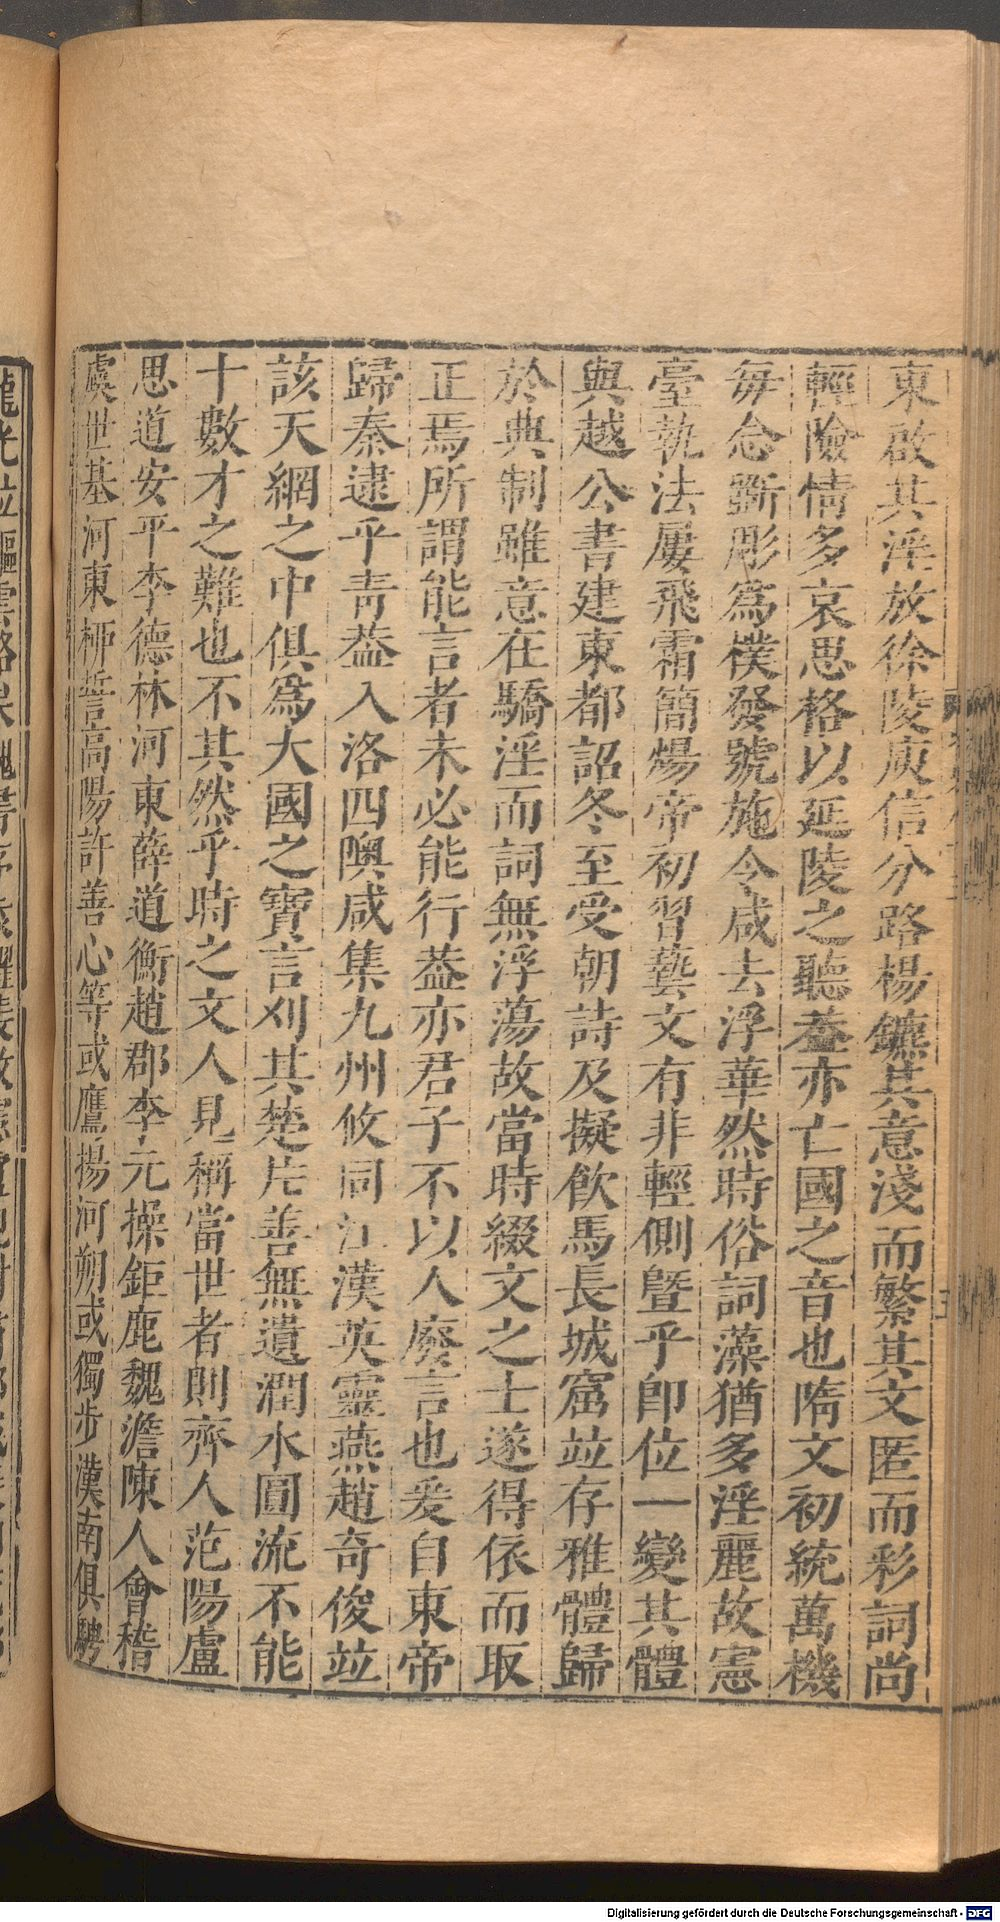 東啟其淫放徐陵庾信分路楊鑣其意淺而繁其文匿而彩詞尚
輕險情多哀思格以延陵之聽葢亦亡國之音也隋文初統萬機
每念斲彫爲樸發號施令咸去浮華然時俗詞藻猶多淫麗故憲
臺執法屢飛霜簡煬帝初習藝文有非輕側曁乎卽位一變其體
與越公書建東都詔冬至受朝詩及擬飮馬長城窟竝存雅體歸
於典制雖意在驕淫而詞無浮蕩故當時綴文之士遂得依而取
正焉所謂能言者未必能行葢亦君子不以人廢言也爰自東帝
歸秦逮乎靑葢入洛四隩咸集九州攸同江漢英靈燕趙奇俊竝
該天網之中俱爲大國之寶言刈其楚片善無遺潤水圓流不能
十數才之難也不其然乎時之文人見稱當世者則齊人范陽盧
思道安平李德林河東薛道衡趙郡李元操鉅鹿魏澹陳人會稽
虞世基河東栁䛒高陽許善心等或鷹揚河朔或獨步漢南俱騁
Digitalisierung gefördert durch die Deutsche Forschungsgemeinschaft - DFG